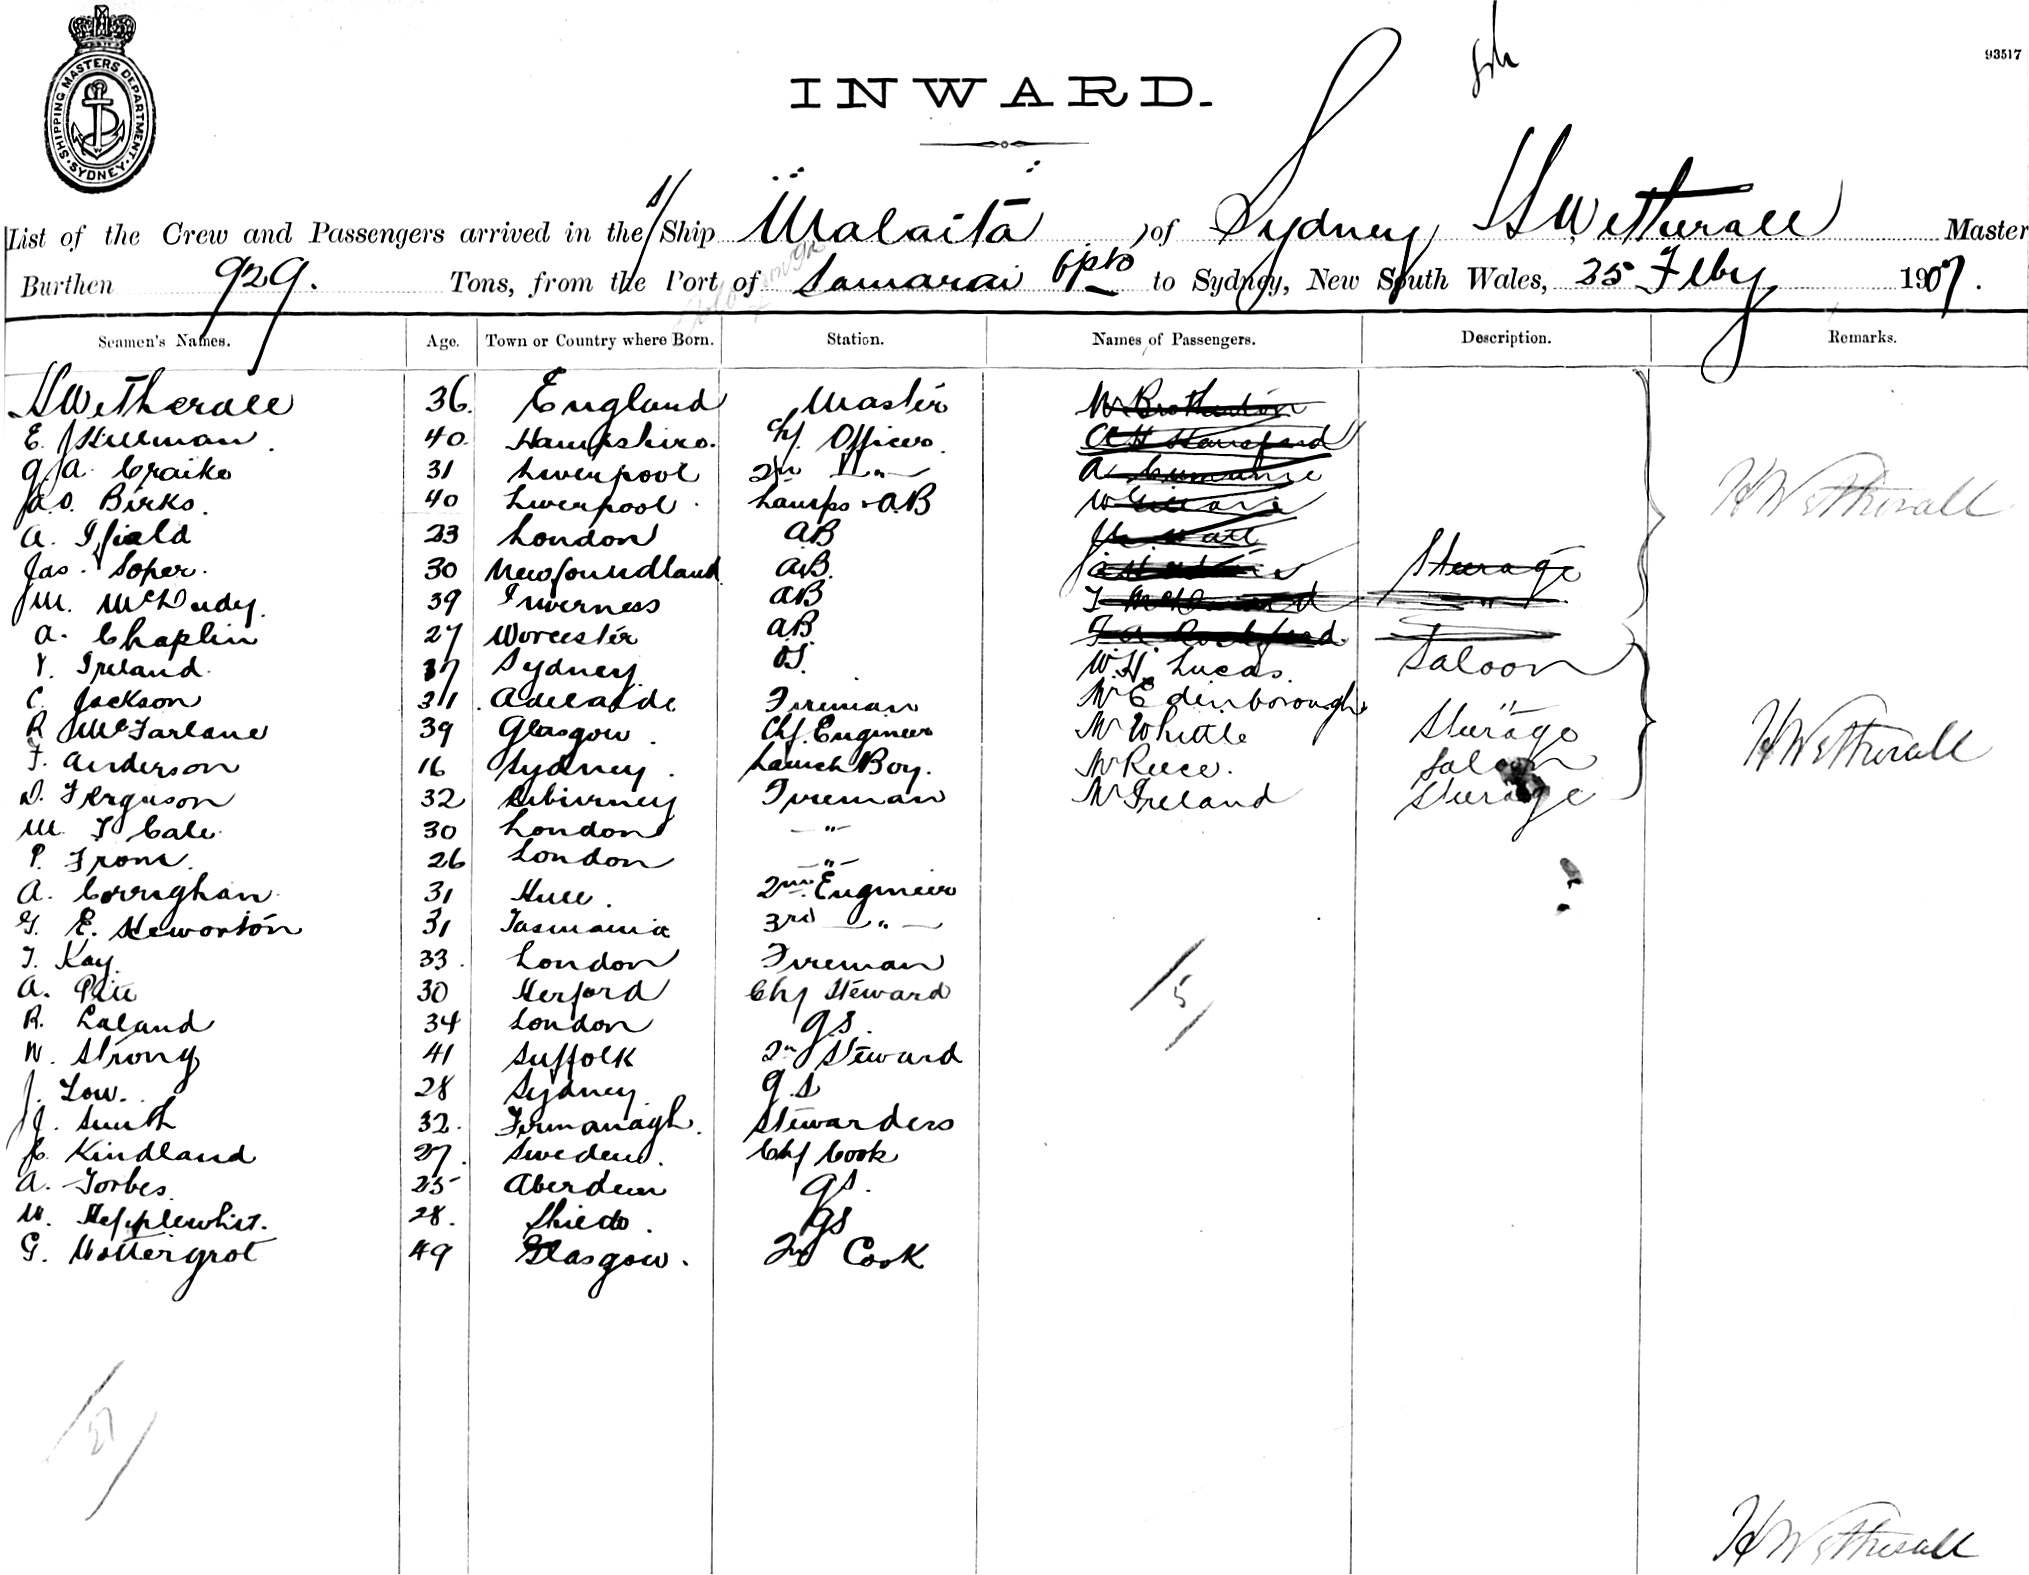 SHIPPING MASTERS DEPARTMENT. SYDNEY
93517
INWARD.
List of the Crew and Passengers arrived in the S/Ship Malaita of Sydney, H Wetherall Master
Burthen 929. Tons, from the Port of Samarai &pts to Sydney, New South Wales, 25 Feby 1907.
Seamen's Names. Age. Town or Country where Born. Station. Names of Passengers. Description. Remarks.
H Wetherall 36. England Master Mr Brotherton
E. J Hillman. 40. Hampshire. Chf. Officer.
G. A. Craike 31 Liverpool 2nd " A
Jas. Birks. 40 Liverpool Lamps & AB H Wetherall
A. Ifield 23 London AB
Jas. Soper. 30 Newfoundland AB. Steerage
M. 39 Inverness AB "
A. Chaplin 27 Worcester AB
V. Ireland. 37 Sydney OS. W. H. Lucas. Saloon
C. Jackson Adelaide Fireman Mr Edenborough "
R McFarlane 39 Glasgow. Chf. Engineer Mr Whittle Steerage H Wetherall
F. Anderson 16 Sydney. Launch Boy. Mr Reece. Saloon
D. Ferguson 32 Fireman Mr Ireland Steerage
M. J Cale 30 London "
P. 26 London "
A. Corrighan. 31 Hull. 2nd Engineer
G. E. Heworton 31 Tasmania 3rd "
T. Kay. 33. London Fireman
A. 30 Herford Chf Steward
R. Laland 34 London GS.
W. Strong 41 Suffolk 2nd Steward
J. Low. 28 Sydney G.S
J. Smith 32. Fermanagh. Stewardess
C. Kindland 27. Sweden. Chf Cook
A. Forbes. 25 Aberdeen GS.
W. Hepplewhit. 28. GS
G. Mottergrot 49 Glasgow. 2nd Cook
5
27
H Wetherall